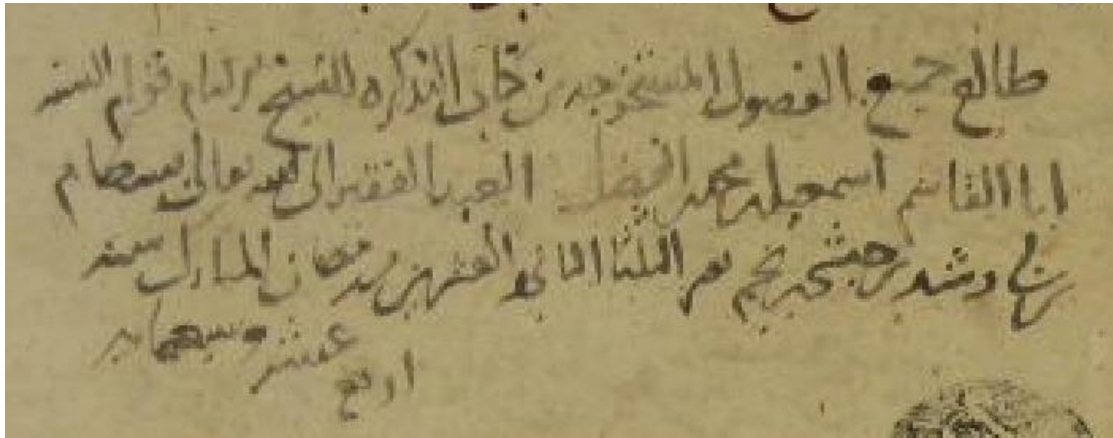 طالع جميع الفصول المستخرجه من كتاب التذكره للشيخ الامام قوام السنه
ابا القاسم اسمعيل بن محمد الفضل العبد الفقير الى الله تعالى بسطام
بن رشد بن نجم يوم الثلثا الثاني والعشرين من رمضان المبارك سنه
اربع عشر وسبعمايه